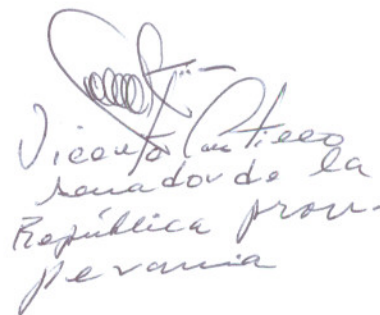 Vicente Castillo
senador de la
República prov.
Peravia